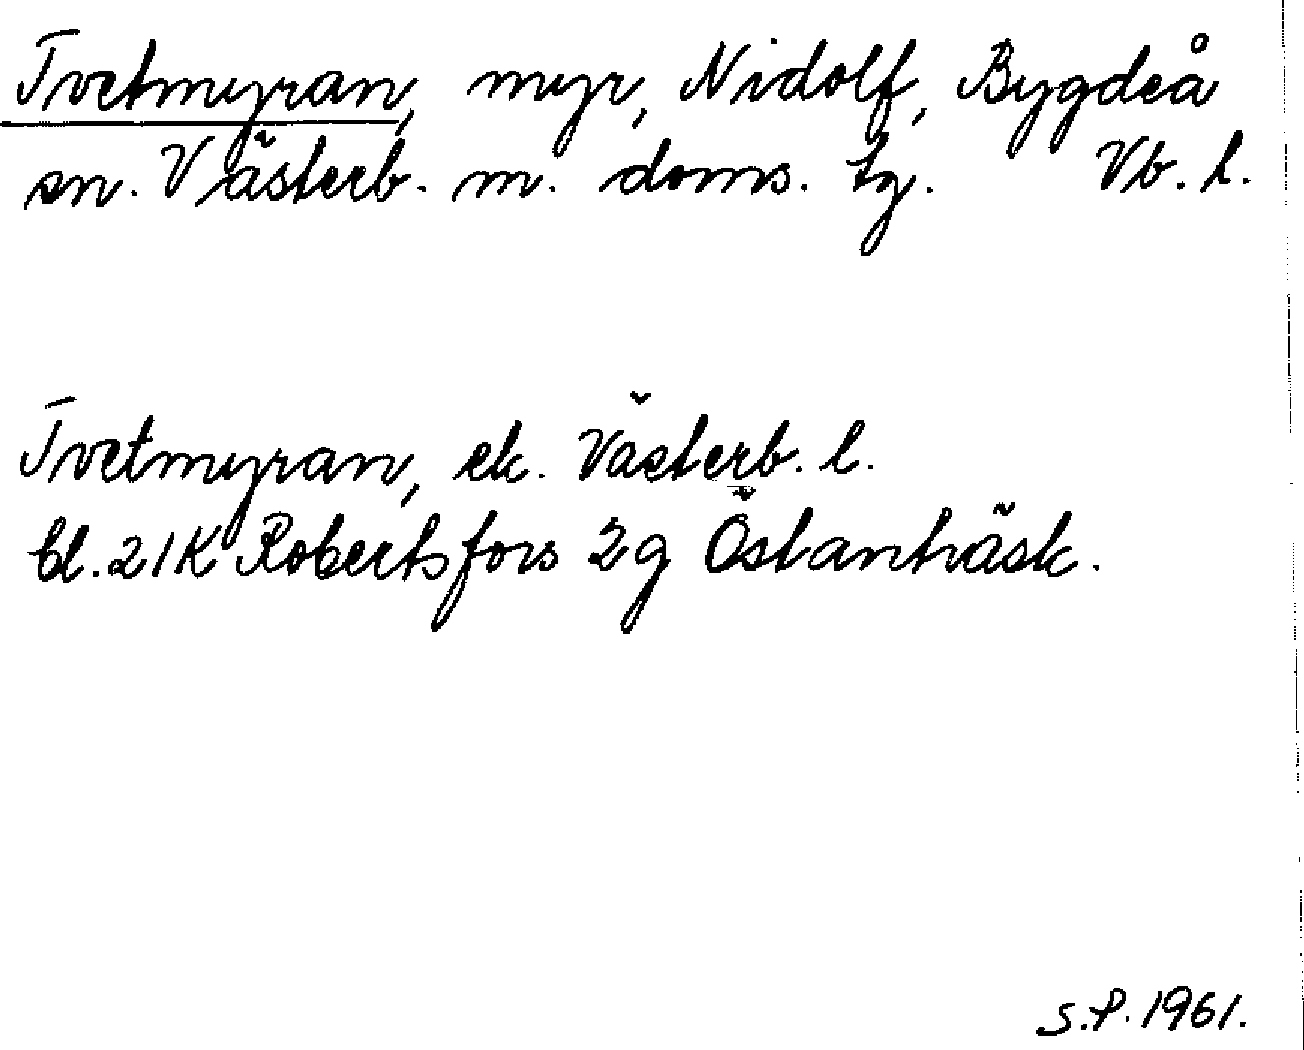 Tvetmyran, myr, Nidolf, Bygdeå
sn. Västerb. m. doms. tg. Vb. l.
Tvetmyran, ek. Västerb. l.
bl. 21K Robertsfors 2g Östanträsk.
S.P. 1961.